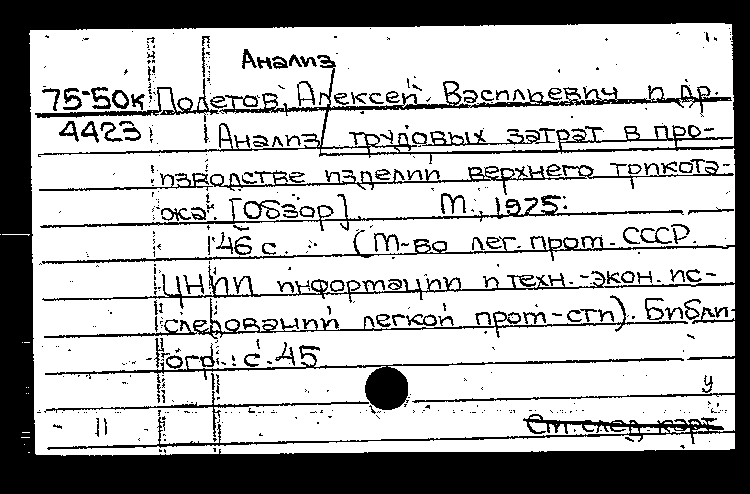 1.
Анализ
75-50к Полетов, Алексей Васильевич и др.
4423 Анализ трудовых затрат в про-
изводстве изделий верхнего трикота-
жа. [Обзор]. М., 1975.
46 с. (М-во лег. пром. СССР.
ЦНИИ информации и техн.-экон. ис-
следований легкой пром-сти). Библи-
огр.: с. 45
у
11 См. след. карт.